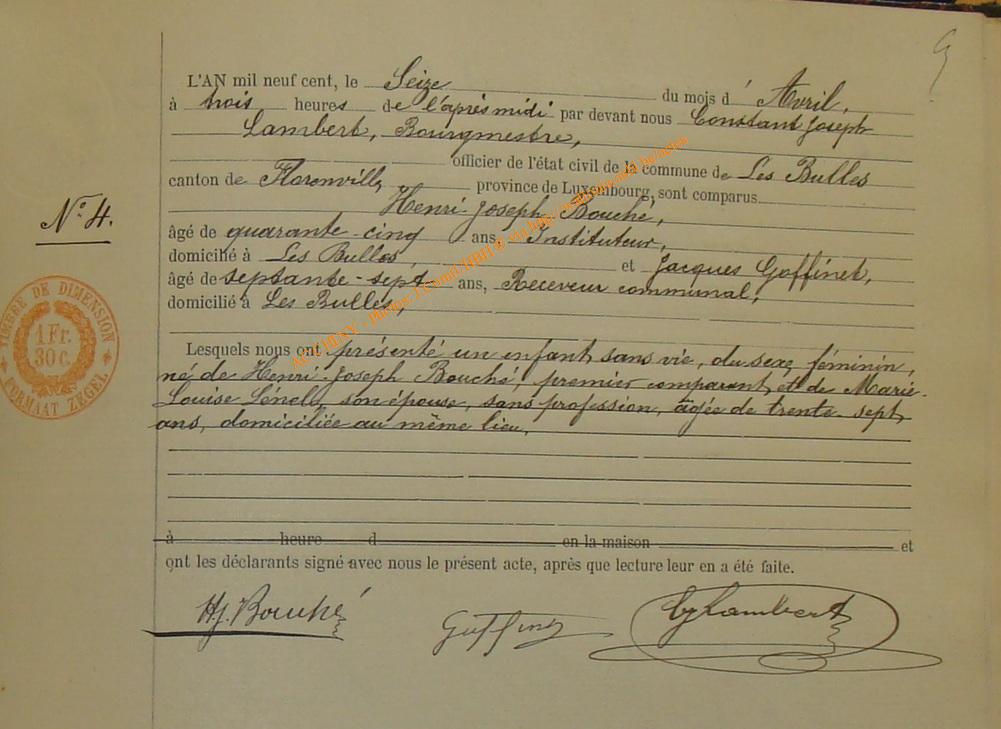 L'AN mil neuf cent, le Seize du mois d' Avril,
à trois heures de l'après midi par devant nous Constant Joseph
Lambert, Bourgmestre,
officier de l'état civil de la commune de Les Bulles
canton de Florenville province de Luxembourg, sont comparus
Henri-Joseph Bouché,
âgé de quarante-cinq ans, Instituteur,
domicilié à Les Bulles, et Jacques Goffinet,
âgé de septante-sept ans, Receveur communal,
domicilié à Les Bulles,
N° 4.
TIMBRE DE DIMENSION
1 Fr.
30 c.
FORMAAT ZEGEL
Lesquels nous ont présenté un enfant sans vie, du sexe féminin,
né de Henri-Joseph Bouché, premier comparant, et de Marie-
Louise son épouse, sans profession, âgée de trente-sept
ans, domiciliée au même lieu,
à heure d en la maison et
ont les déclarants signé avec nous le présent acte, après que lecture leur en a été faite.
HJ. Bouché
Goffinet
CJ Lambert